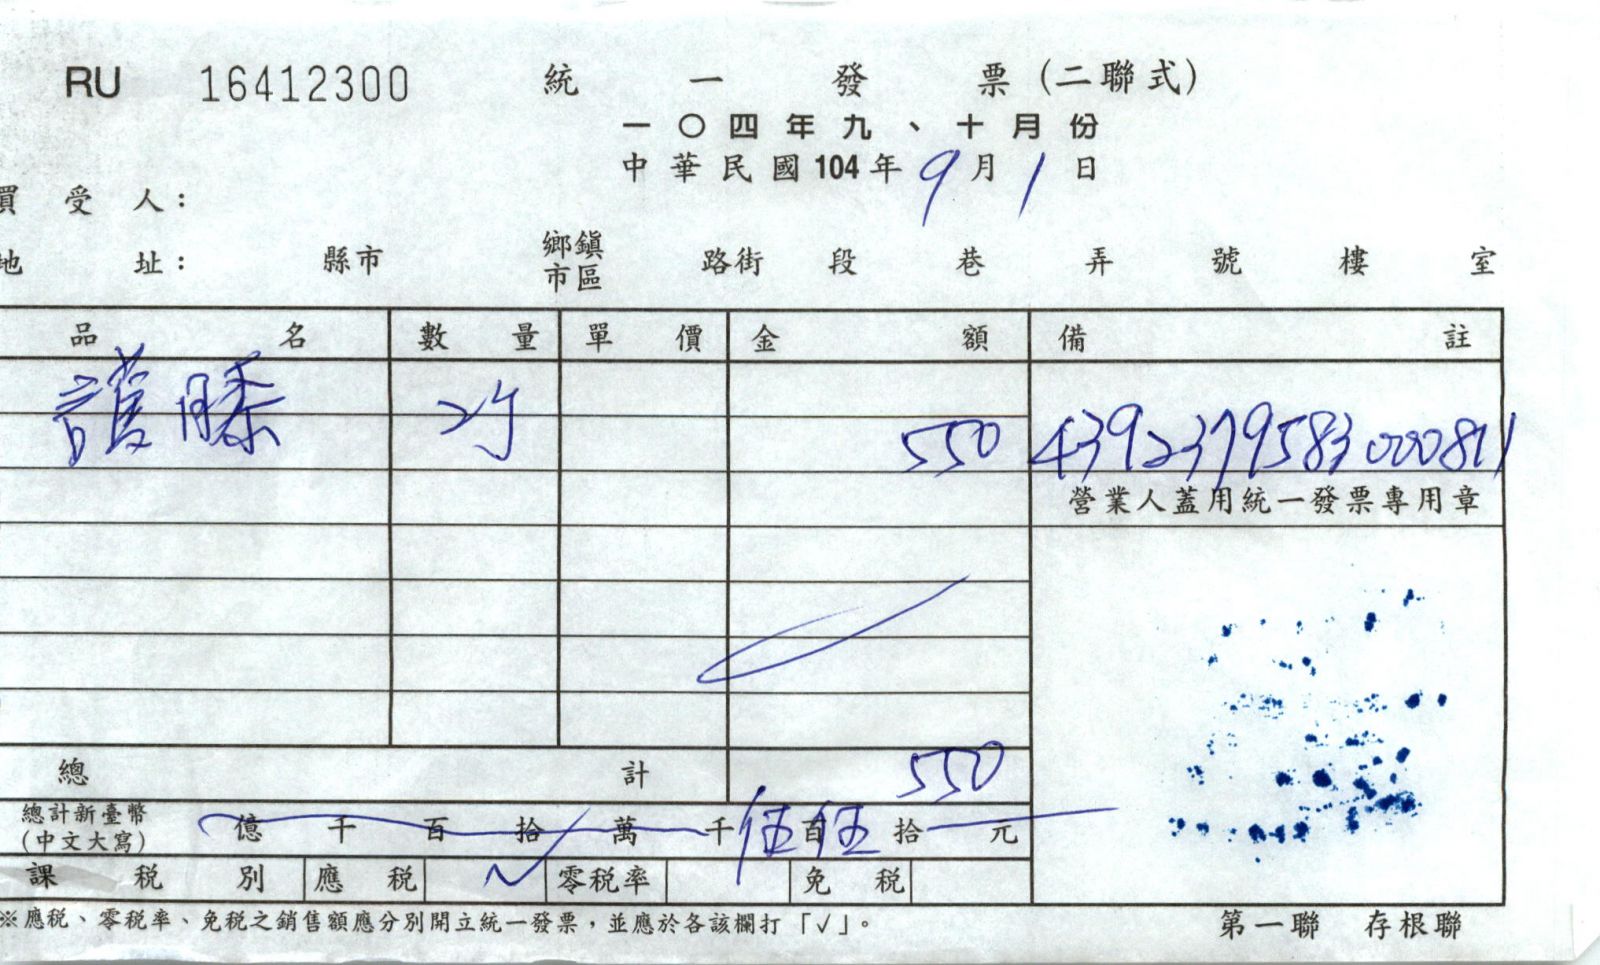 RU 16412300 統一發票(二聯式)
一〇四年九、十月份
中華民國104年9月1日
買受人：
地址： 縣市 鄉鎮市區 路街 段 巷 弄 號 樓 室
品名 數量 單價 金額 備註
護膝 2 550 4392379583000811
營業人蓋用統一發票專用章
總計 550
總計新臺幣(中文大寫) 億千百拾萬千伍百伍拾元
課稅別 應稅 ✓ 零稅率 免稅
※應稅、零稅率、免稅之銷售額應分別開立統一發票，並應於各該欄打「✓」。
第一聯 存根聯